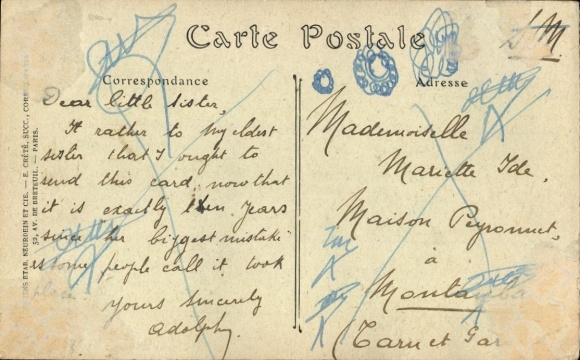 Carte Postale
Correspondance
Adresse
Dear little sister,
It rather to my eldest
sister that I ought to
send this card, now that
it is exactly ten years
since her biggest mistake
as some people call it took
place
Yours sincerely
Adolphy.
Mademoiselle
Mariette Ide,
Maison Peyronnet,
à
(Tarn et Gar
ETAB. NEURDEIN ET CIE. — E. CRÉTÉ, SUCC., CORB
52, AV. DE BRETEUIL. — PARIS.